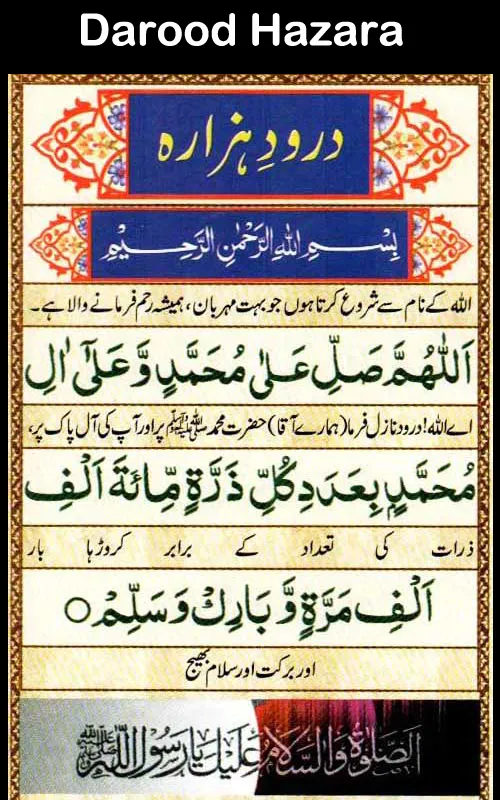 Darood Hazara
درودِ ہزارہ
بِسْمِ اللهِ الرَّحْمٰنِ الرَّحِيْمِ
اللہ کے نام سے شروع کرتا ہوں جو بہت مہربان، ہمیشہ رحم فرمانے والا ہے۔
اَللّٰهُمَّ صَلِّ عَلٰى مُحَمَّدٍ وَّ عَلٰٓى اٰلِ
اے اللہ! درود نازل فرما (ہمارے آقا) حضرت محمد ﷺ پر اور آپ کی آل پاک پر،
مُحَمَّدٍۭ بِعَدَدِ كُلِّ ذَرَّةٍ مِّائَةَ اَلْفِ
ذرات کی تعداد کے برابر کروڑہا بار
اَلْفِ مَرَّةٍ وَّ بَارِكْ وَسَلِّمْ ○
اور برکت اور سلام بھیج
الصَّلوٰةُ وَالسَّلَامُ عَلَيْكَ يَا رَسُوْلَ اللّٰهِ ﷺ